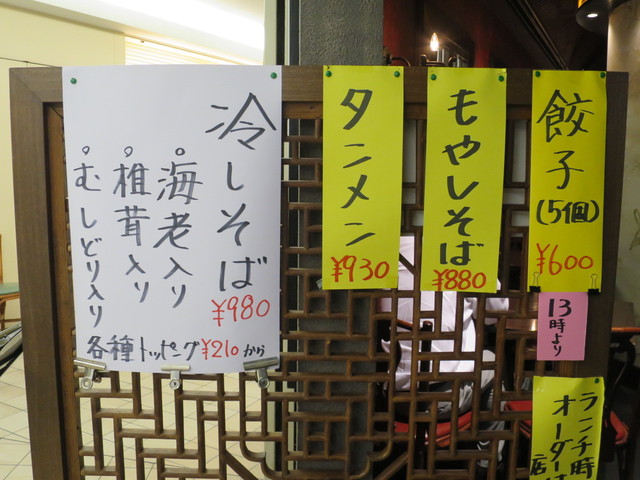 餃子
(5個)
¥600
13時より
ランチ時
オーダーは
店
もやしそば
¥880
タンメン
¥930
冷しそば
¥980
。海老入り
。椎茸入り
。むしどり入り
各種トッピング¥210から